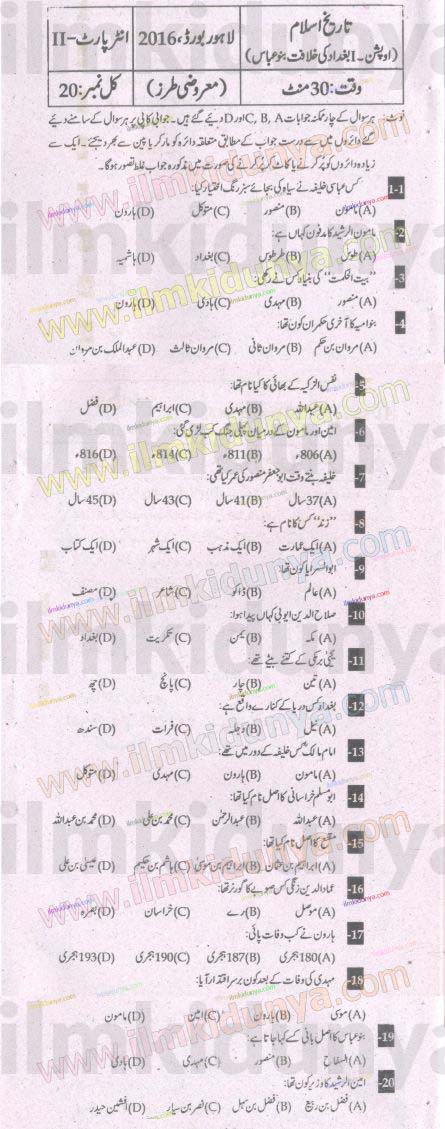 تاریخ اسلام
(اوپشن۔I بغداد کی خلافت بنو عباس)
لاہور بورڈ، 2016
انٹر پارٹ-II
وقت: 30 منٹ
(معروضی طرز)
کل نمبر: 20
نوٹ: ہر سوال کے چار ممکنہ جوابات C, B, A اور D دیئے گئے ہیں۔ جوابی کاپی پر ہر سوال کے سامنے دیئے
گئے دائروں میں سے درست جواب کے مطابق متعلقہ دائرہ کو مارکر یا پین سے بھر دیجئے۔ ایک سے
زیادہ دائروں کو پُر کرنے یا کاٹ کر پُر کرنے کی صورت میں مذکورہ جواب غلط تصور ہوگا۔
1-1 کس عباسی خلیفہ نے سیاہ کی بجائے سبز رنگ اختیار کیا:
(A) مامون (B) منصور (C) متوکل (D) ہارون
-2 مامون الرشید کا مدفون کہاں ہے:
(A) طوس (B) طرطوس (C) بغداد (D) ہاشمیہ
-3 "بیت الحکمت" کی بنیاد کس نے رکھی:
(A) منصور (B) مہدی (C) ہادی (D) ہارون
-4 بنو امیہ کا آخری حکمران کون تھا:
(A) مروان بن حکم (B) مروان ثانی (C) مروان ثالث (D) عبدالملک بن مروان
-5 نفس الزکیہ کے بھائی کا کیا نام تھا:
(A) عبداللہ (B) مہدی (C) ابراہیم (D) فضل
-6 امین اور مامون کے درمیان پہلی جنگ کب لڑی گئی:
(A) 806ء (B) 811ء (C) 814ء (D) 816ء
-7 خلیفہ بنتے وقت ابو جعفر منصور کی عمر کیا تھی:
(A) 37 سال (B) 41 سال (C) 43 سال (D) 45 سال
-8 "ژند" کس کا نام ہے:
(A) ایک عمارت (B) ایک مذہب (C) ایک شہر (D) ایک کتاب
-9 ابو السرایا کون تھا:
(A) عالم (B) ڈاکو (C) شاعر (D) مصنف
-10 صلاح الدین ایوبی کہاں پیدا ہوا:
(A) مکہ (B) یمن (C) تکریت (D) بغداد
-11 یحییٰ برمکی کے کتنے بیٹے تھے:
(A) تین (B) چار (C) پانچ (D) چھ
-12 بغداد کس دریا کے کنارے واقع ہے:
(A) نیل (B) دجلہ (C) فرات (D) سندھ
-13 امام مالکؒ کس خلیفہ کے دور میں تھے:
(A) مامون (B) ہارون (C) مہدی (D) متوکل
-14 ابو مسلم خراسانی کا اصل نام کیا تھا:
(A) عبداللہ (B) عبدالرحمٰن (C) محمد بن علی (D) محمد بن عبداللہ
-15 مقنع کا اصل نام کیا تھا:
(A) ابراہیم بن عثمان (B) ابراہیم بن موسیٰ (C) ہاشم بن حکیم (D) عیسیٰ بن علی
-16 عماد الدین زنگی کس صوبے کا گورنر تھا:
(A) موصل (B) رے (C) خراسان (D) بصرہ
-17 ہارون نے کب وفات پائی:
(A) 180 ہجری (B) 187 ہجری (C) 190 ہجری (D) 193 ہجری
-18 مہدی کی وفات کے بعد کون برسر اقتدار آیا:
(A) موسیٰ (B) ہارون (C) امین (D) مامون
-19 بنو عباس کا اصل بانی کسے کہا جاتا ہے:
(A) السفاح (B) منصور (C) مہدی (D) ہادی
-20 امین الرشید کا وزیر کون تھا:
(A) فضل بن ربیع (B) فضل بن سہل (C) نصر بن سیار (D) افشین حیدر
www.ilmkidunya.com